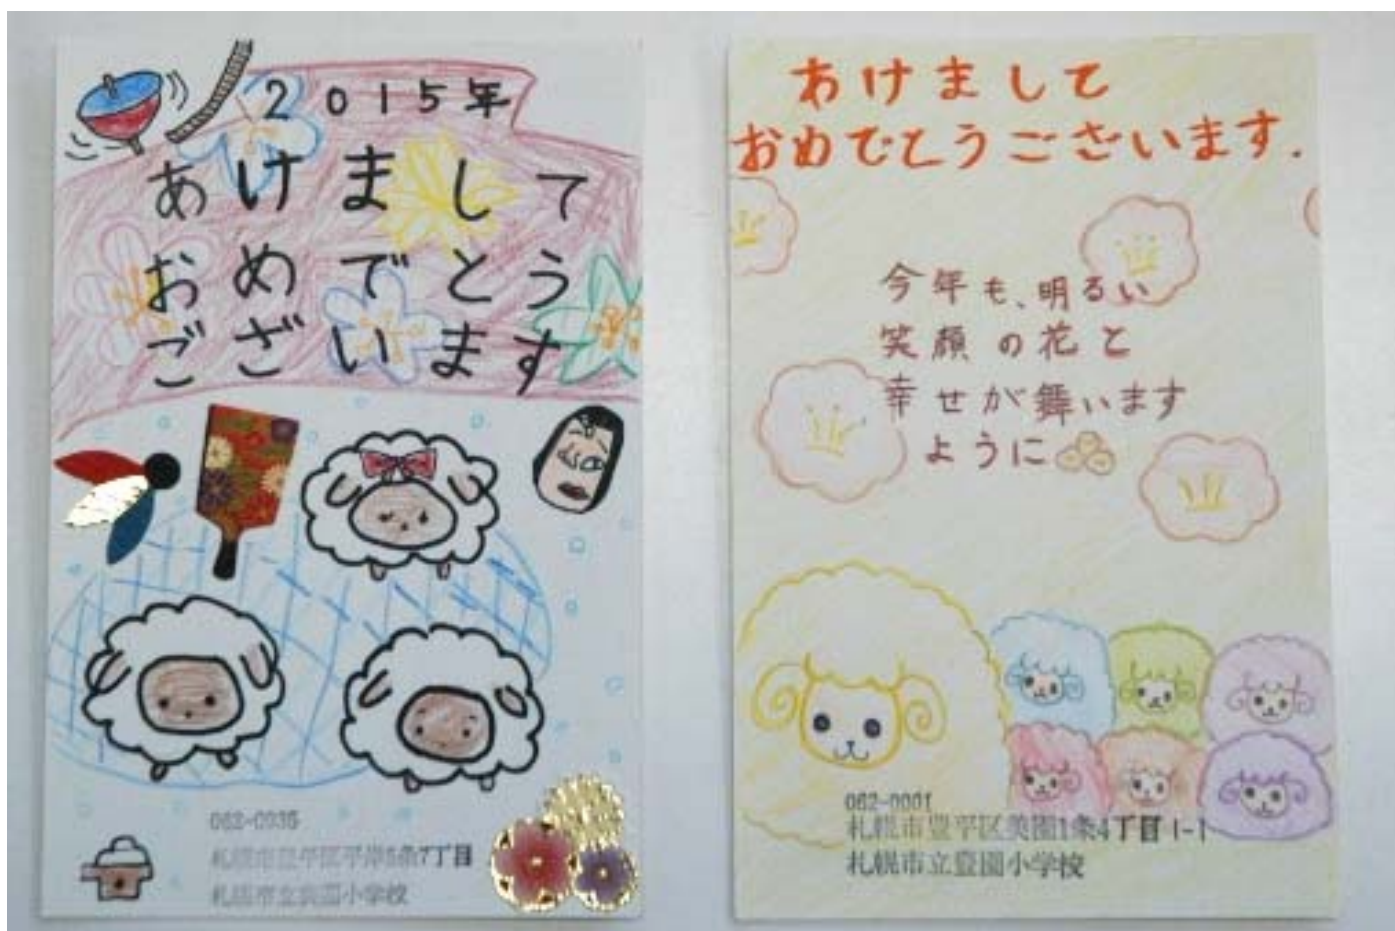 2015年
あけまして
おめでとう
ございます
062-0935
札幌市豊平区平岸5条7丁目
札幌市立豊園小学校
あけまして
おめでとうございます.
今年も、明るい
笑顔の花と
幸せが舞います
ように
062-0001
札幌市豊平区美園1条4丁目1-1
札幌市立豊園小学校